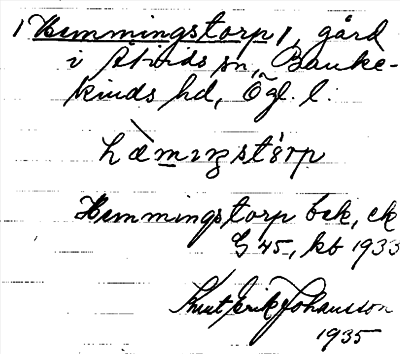 1 Hemmingstorp 1, gård
i Åtvids sn, Banke-
kinds hd, Ögl. l.
hæmıŋstå̀rp
Hemmingstorp bek, ek
G 45, kb 1933
Knut Erik Johansson
1935